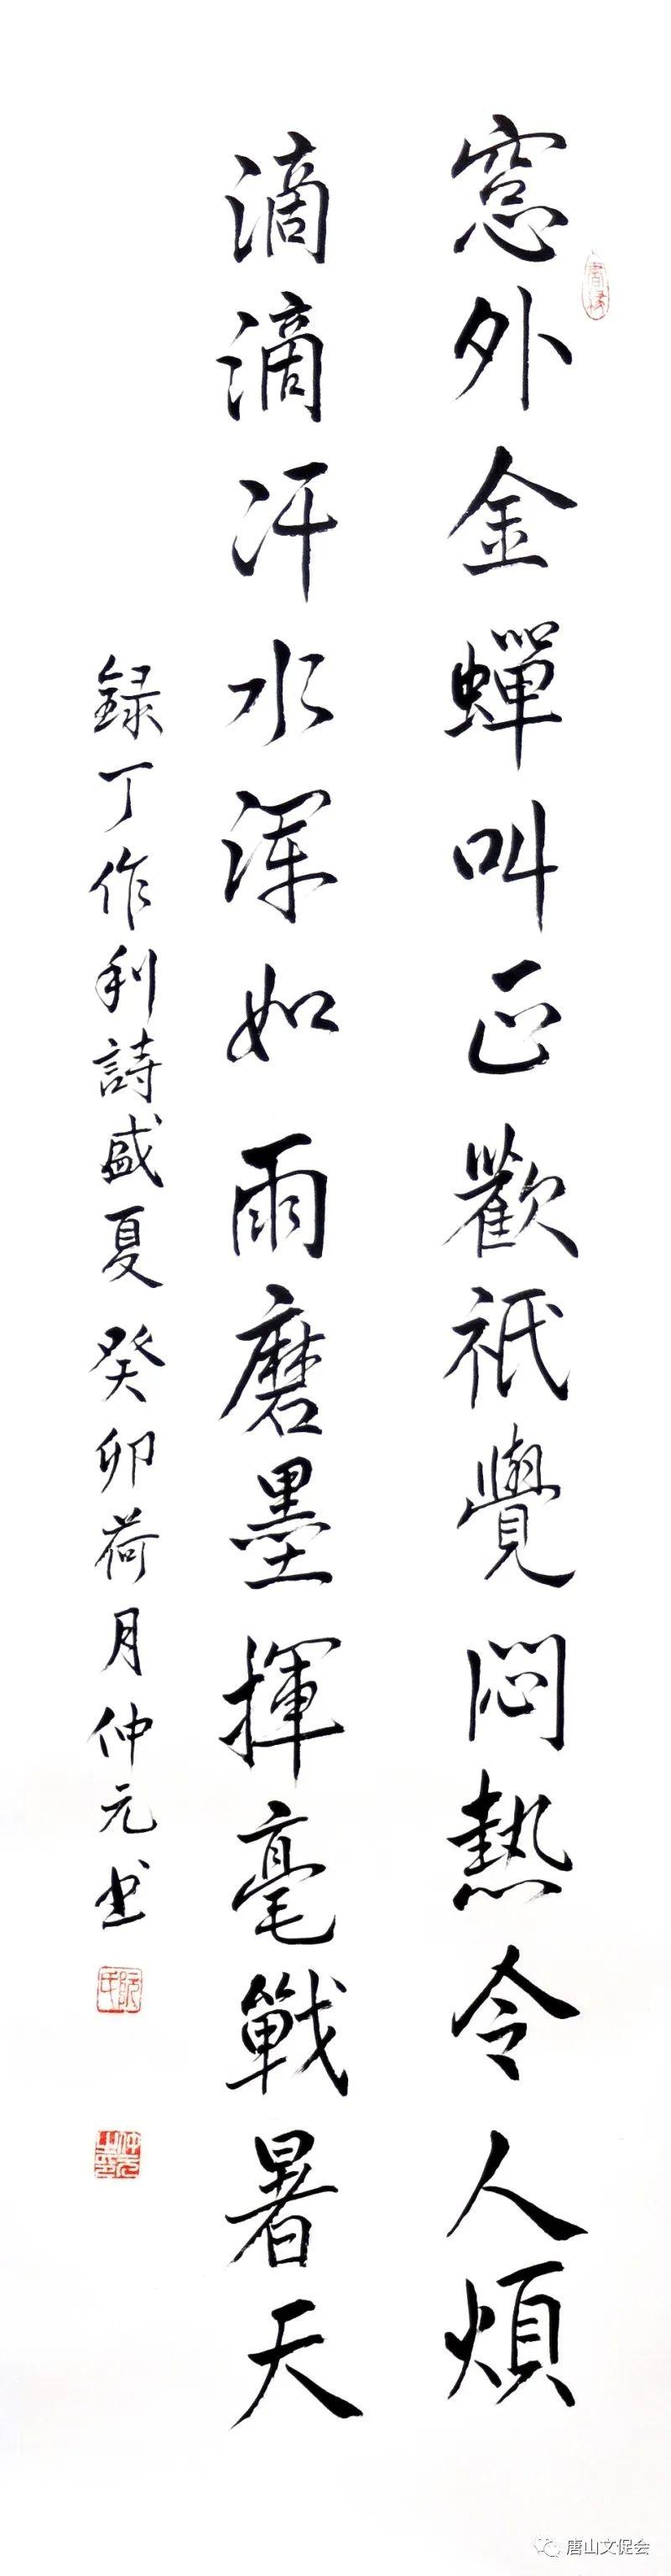 窓外金蟬叫正歡祇覺悶熱令人煩
滴滴汗水渾如雨磨墨揮毫戰暑天
録丁作利詩盛夏癸卯荷月仲元书
唐山文促会